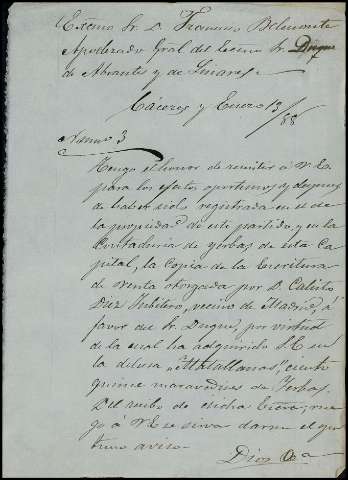 Excmo Sr. D. Francisco Belmonte
Apoderado Gral del Excmo Sr. Duque
de Abrantes y de Linares.
Cáceres y Enero 13/88
Num 3
Tengo el honor de remitir á V.E.
para los efectos oportunos y despues
de haber sido registrada en el de
la propiedad de este partido, y en la
Contaduria de yerbas de esta Ca
pital, la Copia de la Escritura
de venta otorgada por D. Calisto
Diez Tubilero, vecino de Madrid, á
favor del Sr. Duque, por virtud
de la cual ha adquirido S.E en
la dehesa "Matallanas," ciento
quince maravedises de Yerbas.
Del recibo de dicha Escra, rue
go á V.E se sirva darme el opor
tuno aviso.
Dios &a